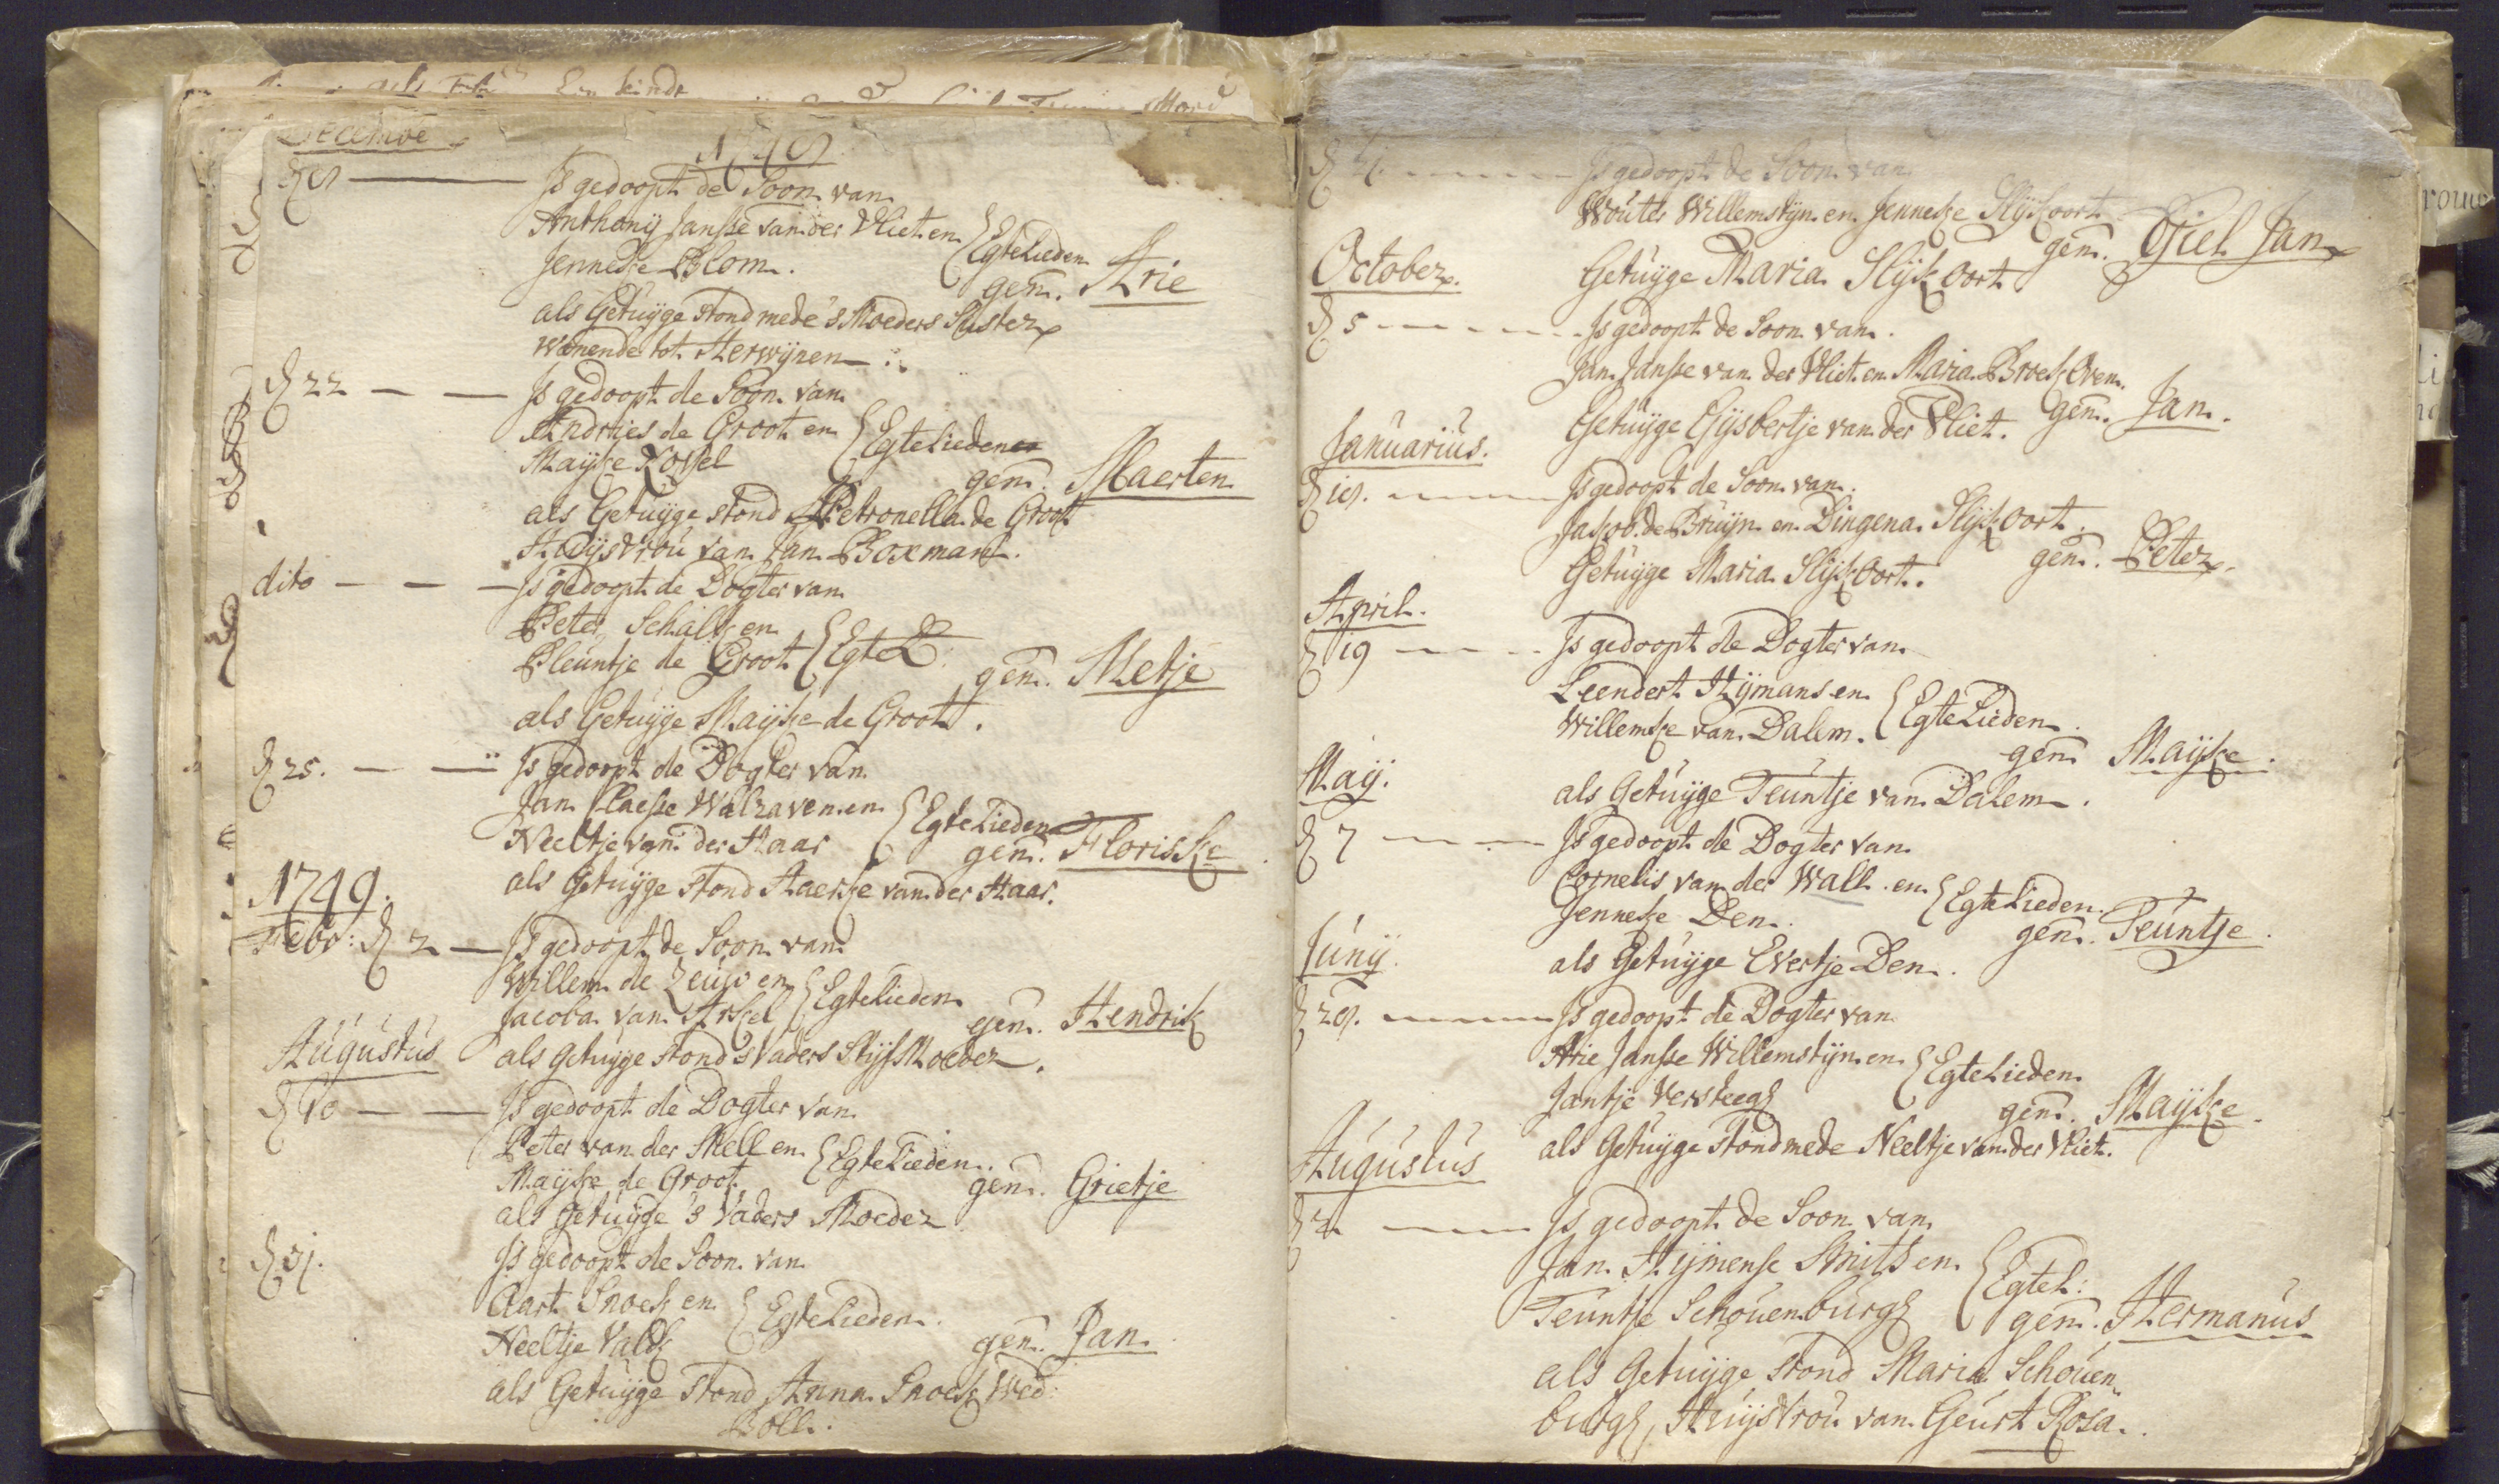 Decembe
1748
d 8 Js gedoopt de Soon van
Anthonij Janße van der Vliet en
Jenneke Blom. Egtelieden
gen. Arie
als Getuÿge stond mede 's Moeders Suster
wonende tot Herwijnen
d 22 Js gedoopt de Soon van
Andries de Groot en
Maÿke Kossel Egtelieden
gen. Maerten
als Getuÿge stond Petronella de Groot
Huÿsvroú van Jan Boxman.
dito Js gedoopt de Dogter van
Peter Schalk en
Pleuntje de Groot Egte L
gen. Metje
als Getuÿge Maÿke de Groot.
d 25. Js gedoopt de Dogter van
Jan Claeße Walraven en
Neeltje van der Haar Egtelieden
gen. Floriske
als Getuÿge stond Haerke van der Haar.
1749.
Febr: d 2 Js gedoopt de Soon van
Willem de Zeúw en
Jacoba van Arkel Egtelieden
gen. Hendrik
Augustus
als Getuÿge stond 's Vaders Stijfmoeder.
d 10 Js gedoopt de Dogter van
Peter van der Mell en
Maÿke de Groot Egtelieden.
gen. Grietje
als Getuÿge 's Vaders Moeder
d 31. Js gedoopt de Soon van
Aart Snoek en
Neeltje Valk Egtelieden.
gen. Jan.
als Getuÿge stond Anna Snoek Wed:
Boll.
Js gedoopt de Soon van
Wouter Willemstijn en Jenneke Slijkoort
gen. Giel Jan
Getuÿge Maria Slijkoort
October.
d 5 Js gedoopt de Soon van.
Jan Janße van der Vliet en Maria Broekoven.
gen. Jan.
Getuÿge Gijsbertje van der Vliet.
Januarius.
d 18. Js gedoopt de Soon van.
Jakob de Bruÿn en Dingena Slijkoort.
gen. Peter.
Getuÿge Maria Slijkoort.
April.
d 19 Js gedoopt de Dogter van
Leendert Hijmans en
Willemke van Dalem. Egtelieden.
gen. Maÿke.
als Getuÿge Teuntje van Dalem.
Maÿ.
d 7 Js gedoopt de Dogter van
Cornelis van der Wall en
Jenneke Den. Egtelieden.
gen. Teuntje.
als Getuÿge Evertje Den.
Junÿ.
d 28. Js gedoopt de Dogter van
Arie Janße Willemstijn en
Jantje Versteegh Egtelieden.
gen. Maÿke.
als Getuÿge stond mede Neeltje van der Vliet.
Augustus
d 2 Js gedoopt de Soon van
Jan Hijmense Smits en
Teuntje Schouenburgh Egtel:
gen. Hermanus
als Getuÿge stond Maria Schouen„
burgh, Huÿsvroú van Geurt Rosa.